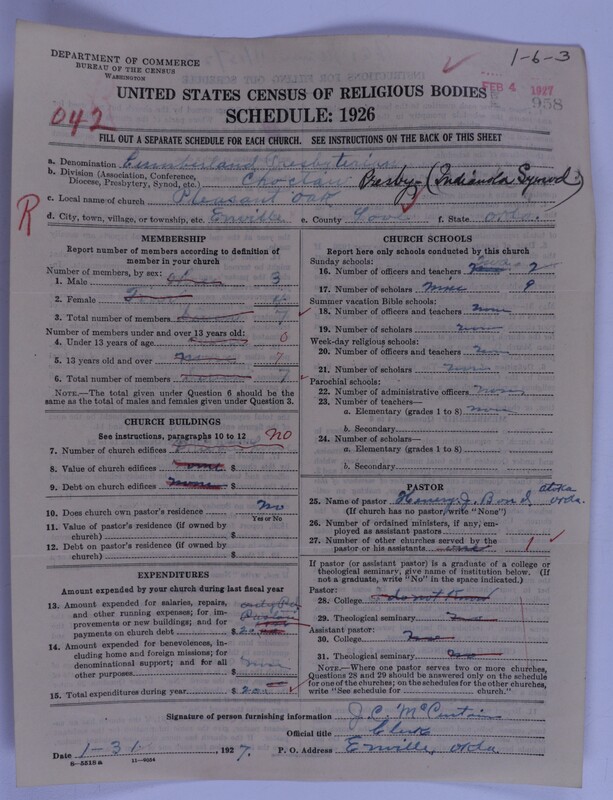 DEPARTMENT OF COMMERCE
BUREAU OF THE CENSUS
WASHINGTON
1-6-3
FEB 4 1927
958
UNITED STATES CENSUS OF RELIGIOUS BODIES
SCHEDULE: 1926
042
FILL OUT A SEPARATE SCHEDULE FOR EACH CHURCH. SEE INSTRUCTIONS ON THE BACK OF THIS SHEET
a. Denomination Cumberland Presbyterian
b. Division (Association, Conference, Diocese, Presbytery, Synod, etc.) Choctaw Presby- (Indianola Synod)
c. Local name of church Pleasant Oak
R
d. City, town, village, or township, etc. Enville e. County Love f. State Okla.
MEMBERSHIP
Report number of members according to definition of
member in your church
Number of members, by sex:
1. Male 3
2. Female 4
3. Total number of members 7
Number of members under and over 13 years old:
4. Under 13 years of age 0
5. 13 years old and over 7
6. Total number of members 7
NOTE.—The total given under Question 6 should be
same as the total of males and females given under Question 3.
CHURCH BUILDINGS
See instructions, paragraphs 10 to 12 no
7. Number of church edifices
8. Value of church edifices none $
9. Debt on church edifices none $
10. Does church own pastor's residence no
Yes or No
11. Value of pastor's residence (if owned by
church) $
12. Debt on pastor's residence (if owned by
church) $
EXPENDITURES
Amount expended by your church during last fiscal year
13. Amount expended for salaries, repairs,
and other running expenses; for im-
provements or new buildings; and for
payments on church debt $
14. Amount expended for benevolences, in-
cluding home and foreign missions; for
denominational support; and for all
other purposes $
15. Total expenditures during year $
CHURCH SCHOOLS
Report here only schools conducted by this church
Sunday schools:
16. Number of officers and teachers 2
17. Number of scholars nine 9
Summer vacation Bible schools:
18. Number of officers and teachers none
19. Number of scholars none
Week-day religious schools:
20. Number of officers and teachers none
21. Number of scholars none
Parochial schools:
22. Number of administrative officers none
23. Number of teachers—
a. Elementary (grades 1 to 8) none
b. Secondary
24. Number of scholars—
a. Elementary (grades 1 to 8)
b. Secondary
PASTOR
25. Name of pastor Henry J. Bond, Atoka Okla.
(If church has no pastor, write "None")
26. Number of ordained ministers, if any, em-
ployed as assistant pastors
27. Number of other churches served by the
pastor or his assistants 1
If pastor (or assistant pastor) is a graduate of a college or
theological seminary, give name of institution below. (If
not a graduate, write "No" in the space indicated.)
Pastor:
28. College I do not Know
29. Theological seminary
Assistant pastor:
30. College None
31. Theological seminary No
NOTE.—Where one pastor serves two or more churches,
Questions 28 and 29 should be answered only on the schedule
for one of the churches; on the schedules for the other churches,
write "See schedule for church."
Signature of person furnishing information J. C. McCurtain
Official title Clerk
Date 1-31, 1927. P. O. Address Enville, Okla
8-5518a 11-9034